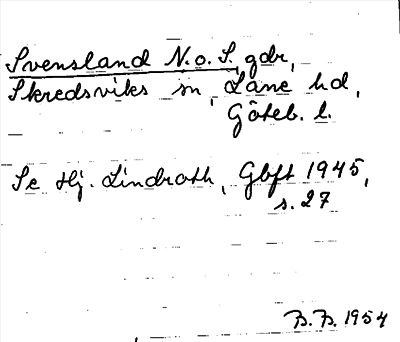 Svensland N. o. S. gdr,
Skredsviks sn, Lane hd,
Göteb. l.
Se Hj. Lindroth, Gbft 1945,
s. 27
B.B. 1954